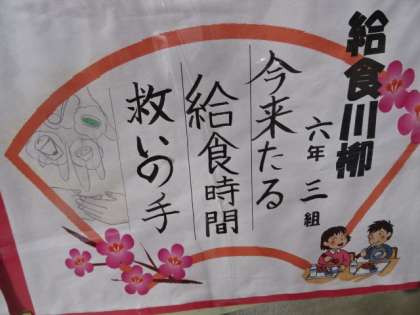 給食川柳
六年三組
今来たる
給食時間
救いの手